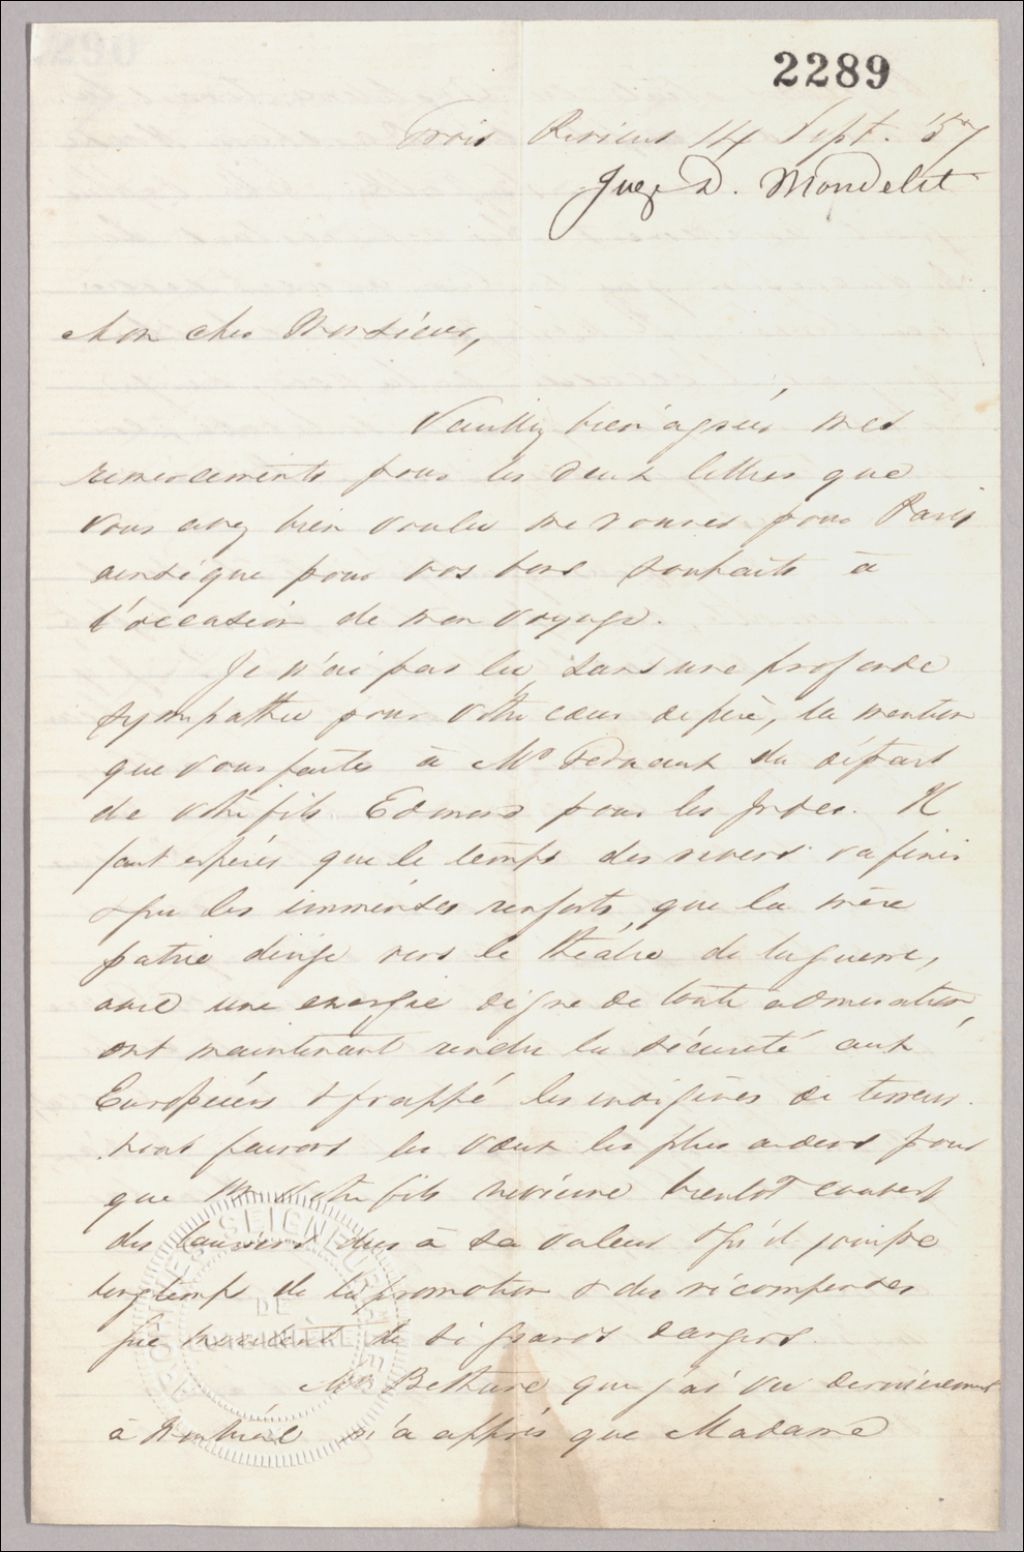 2289
Trois Rivières 14 Sept. '57
Juge D. Mondelet
Mon cher Monsieur,
Veuillez bien agréer mes
remerciements pour les deux lettres que
vous avez bien voulu me donner pour Paris
ainsi que pour vos bons souhaits à
l'occasion de mon voyage.
Je n'ai pas lu, sans une profonde
sympathie pour votre cœur de père, la mention
que vous faites à Mr du départ
de votre fils Edmond pour les Indes. Il
faut espérer que le temps des revers va finir
& que les immenses renforts, que la mère
patrie dirige vers le théâtre de la guerre,
avec une energie digne de toute admiration,
ont maintenant rendu la sécurité aux
Européens & frappé les indigènes de terreur.
Nous faisons les vœux les plus ardens pour
que votre fils revienne bientôt couvert
des lauriers dus à sa valeur & qu'il jouisse
longtemps de la promotion & des récompenses
que méritent de si grands dangers.
Mr Bethune que j'ai vu dernièrement
à Montréal m'a appris que Madame
SEIGNEURIE
DE